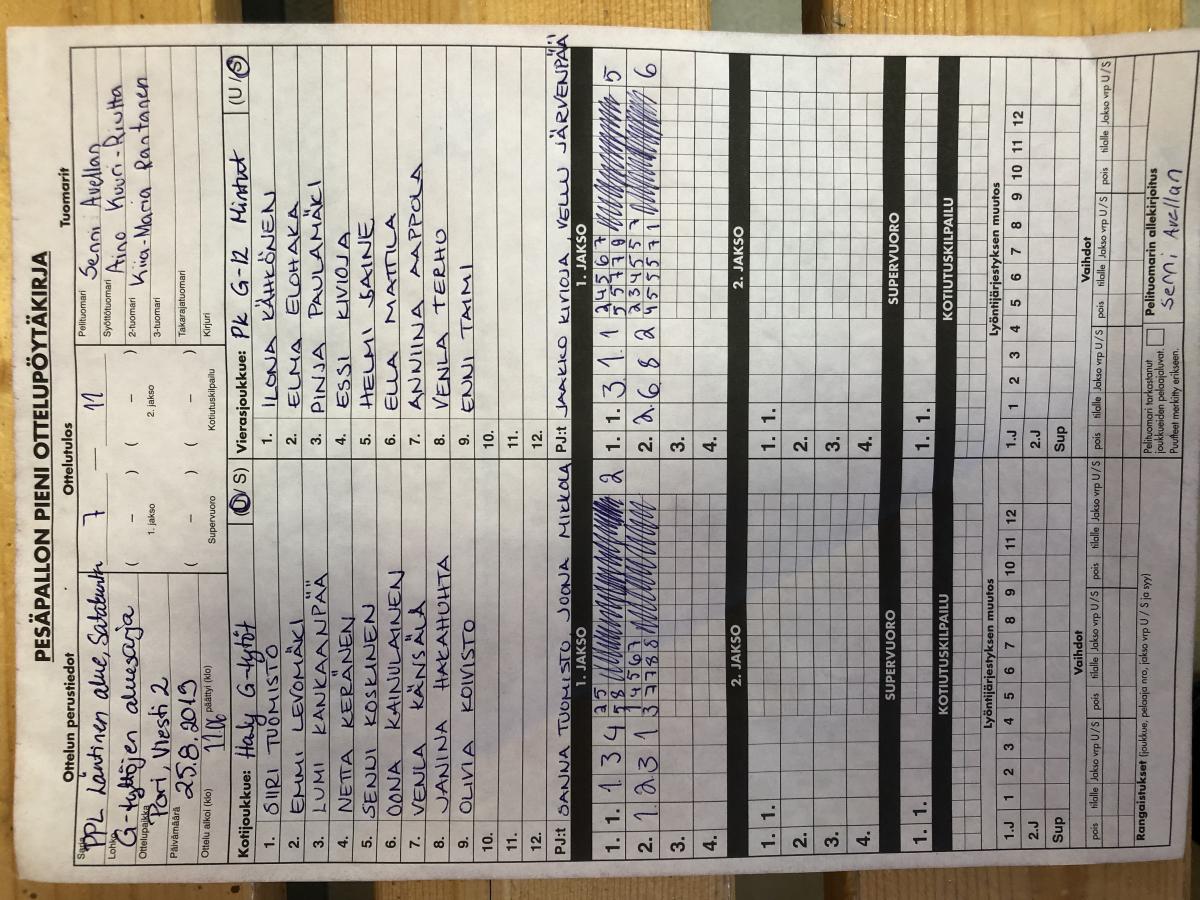 PESÄPALLON PIENI OTTELUPÖYTÄKIRJA
Ottelun perustiedot
Ottelutulos
Tuomarit
Sarja PPL Läntinen alue, Satakunta
Lohko G-tyttöjen aluesarja
Ottelupaikka Pori, Viesti 2
Päivämäärä 25.8.2019
Ottelu alkoi (klo) 11.06 päättyi (klo)
7 — 11
( – ) ( – )
1. jakso 2. jakso
( – ) ( – )
Supervuoro Kotiutuskilpailu
Pelituomari Senni Avellan
Syöttötuomari Aino Kuuri-Riutta
2-tuomari Kiia-Maria Rantanen
3-tuomari
Takarajatuomari
Kirjuri
Kotijoukkue: Haly G-tytöt (U/S)
1. SIIRI TUOMISTO
2. EMMI LEVOMÄKI
3. LUMI KANKAANPÄÄ
4. NETTA KERÄNEN
5. SENNI KOSKINEN
6. OONA KAINULAINEN
7. VENLA KÄNSÄLÄ
8. JANINA HAKAHUHTA
9. OLIVIA KOIVISTO
10.
11.
12.
PJ:t SANNA TUOMISTO, JOONA MIKKOLA
Vierasjoukkue: PK G-12 Mintut (U/S)
1. ILONA KÄHKÖNEN
2. ELMA ELOHAKA
3. PINJA PAULAMÄKI
4. ESSI KIVIOJA
5. HELMI SAINE
6. ELLA MATTILA
7. ANNIINA AAPPOLA
8. VENLA TERHO
9. ENNI TAIMI
10.
11.
12.
PJ:t JAAKKO KIVIOJA, VELLU JÄRVENPÄÄ
1. JAKSO 1. JAKSO
1. 1. 1 3 4 2 5 2
5 8
2. 1. 2 3 1 1 4 5 6 7
3 7 7 8 8
3.
4.
1. 1. 3 1 1 2 4 5 6 7 5
5 5 7 7 9
2. 2. 6 8 2 2 3 4 5 5 7 6
4 5 5 5 7 1
3.
4.
2. JAKSO 2. JAKSO
1. 1.
2.
3.
4.
1. 1.
2.
3.
4.
SUPERVUORO SUPERVUORO
1. 1.
1. 1.
KOTIUTUSKILPAILU KOTIUTUSKILPAILU
Lyöntijärjestyksen muutos
1.J 1 2 3 4 5 6 7 8 9 10 11 12
2.J
Sup
Vaihdot
pois tilalle Jakso vrp U/S pois tilalle Jakso vrp U/S pois tilalle Jakso vrp U/S
Lyöntijärjestyksen muutos
1.J 1 2 3 4 5 6 7 8 9 10 11 12
2.J
Sup
Vaihdot
pois tilalle Jakso vrp U/S pois tilalle Jakso vrp U/S pois tilalle Jakso vrp U/S
Rangaistukset (joukkue, pelaaja nro, jakso vrp U / S ja syy)
Pelituomari tarkastanut
joukkueiden pelaajaluvat.
Puutteet merkitty erikseen.
Pelituomarin allekirjoitus
Senni Avellan